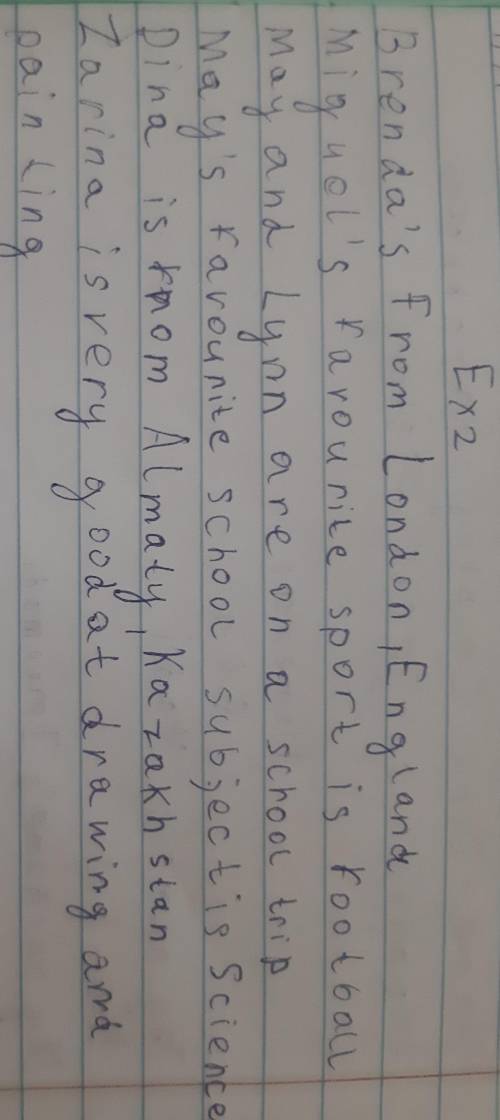 Ex 2
Brenda's from London, England
Miguel's favourite sport is football
May and Lynn are on a school trip
May's favourite school subject is Science
Dina is from Almaty, Kazakhstan
Zarina is very good at drawing and
painting